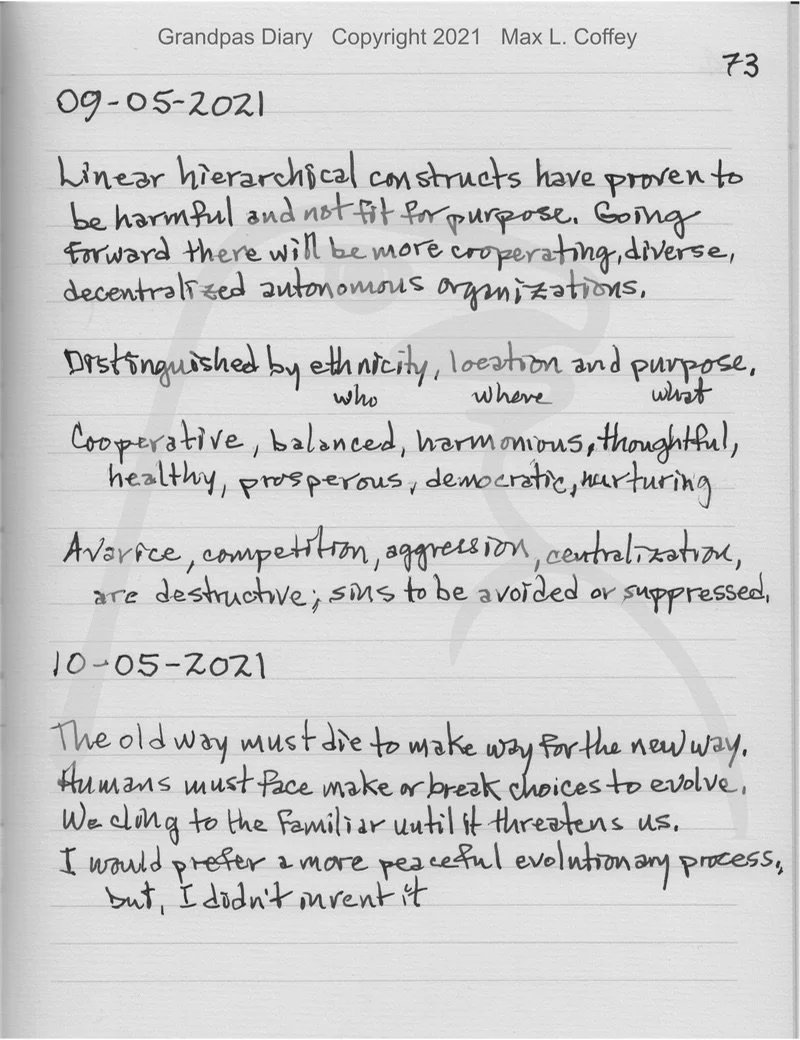 Grandpas Diary Copyright 2021 Max L. Coffey
73
09-05-2021
Linear hierarchical constructs have proven to
be harmful and not fit for purpose. Going
forward there will be more cooperating, diverse,
decentralized autonomous organizations.
Distinguished by ethnicity, location and purpose.
who where what
Cooperative, balanced, harmonious, thoughtful,
healthy, prosperous, democratic, nurturing
Avarice, competition, aggression, centralization,
are destructive; sins to be avoided or suppressed.
10-05-2021
The old way must die to make way for the new way.
Humans must face make or break choices to evolve.
We cling to the familiar until it threatens us.
I would prefer a more peaceful evolutionary process,
but, I didn't invent it